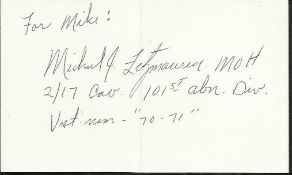 For Mike:
Michael J. Fitzmaurice MOH
2/17 Cav. 101st abn. Div.
Viet nam - "70 - 71"